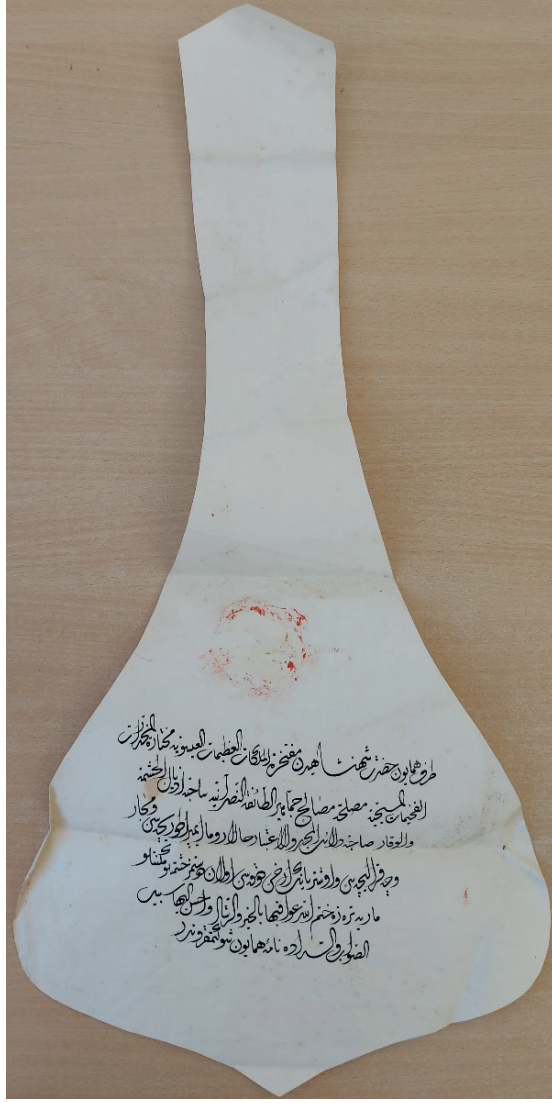 طرف همایون حضرت شهنشاهیدن مفتخرة الملکات العظیمات العیسویه مختارة المخدرات
الفخیمات المسیحیه مصلحة مصالح جماهیر الطائفة النصرانیه ساحبة اذیال الحشمة
والوقار صاحبة دلائل المجد والاعتبار حالا روما ایمپراطوریچه سی و مجار
وچه قرالیچه سی واوستریانک ارشی دوقه سی اولان
ماریه تره زه ختم الله عواقبها بالخیر والرشاد واحسن الیها سبیل
الصواب والسداد نامه همایون شوکتمقروندر